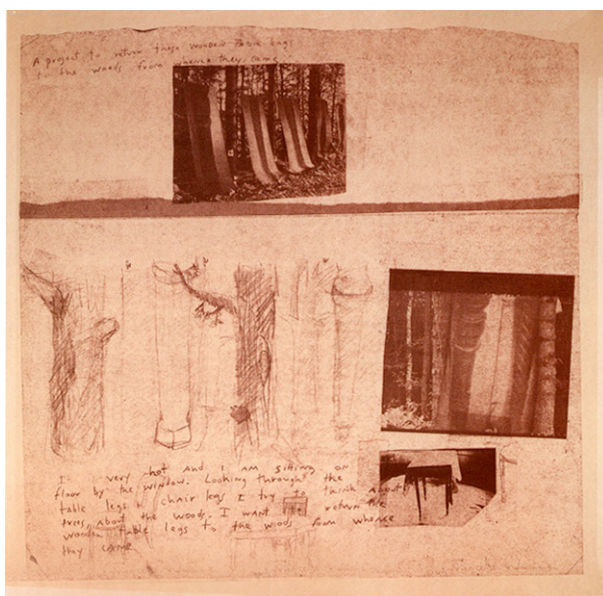 A project to return these wooden table legs
to the woods from whence they came
It very hot and I am sitting on
floor by the window. Looking through the
table legs & chair legs I try to think about
trees, about the woods. I want to return the
wooden table legs to the woods from whence
they came